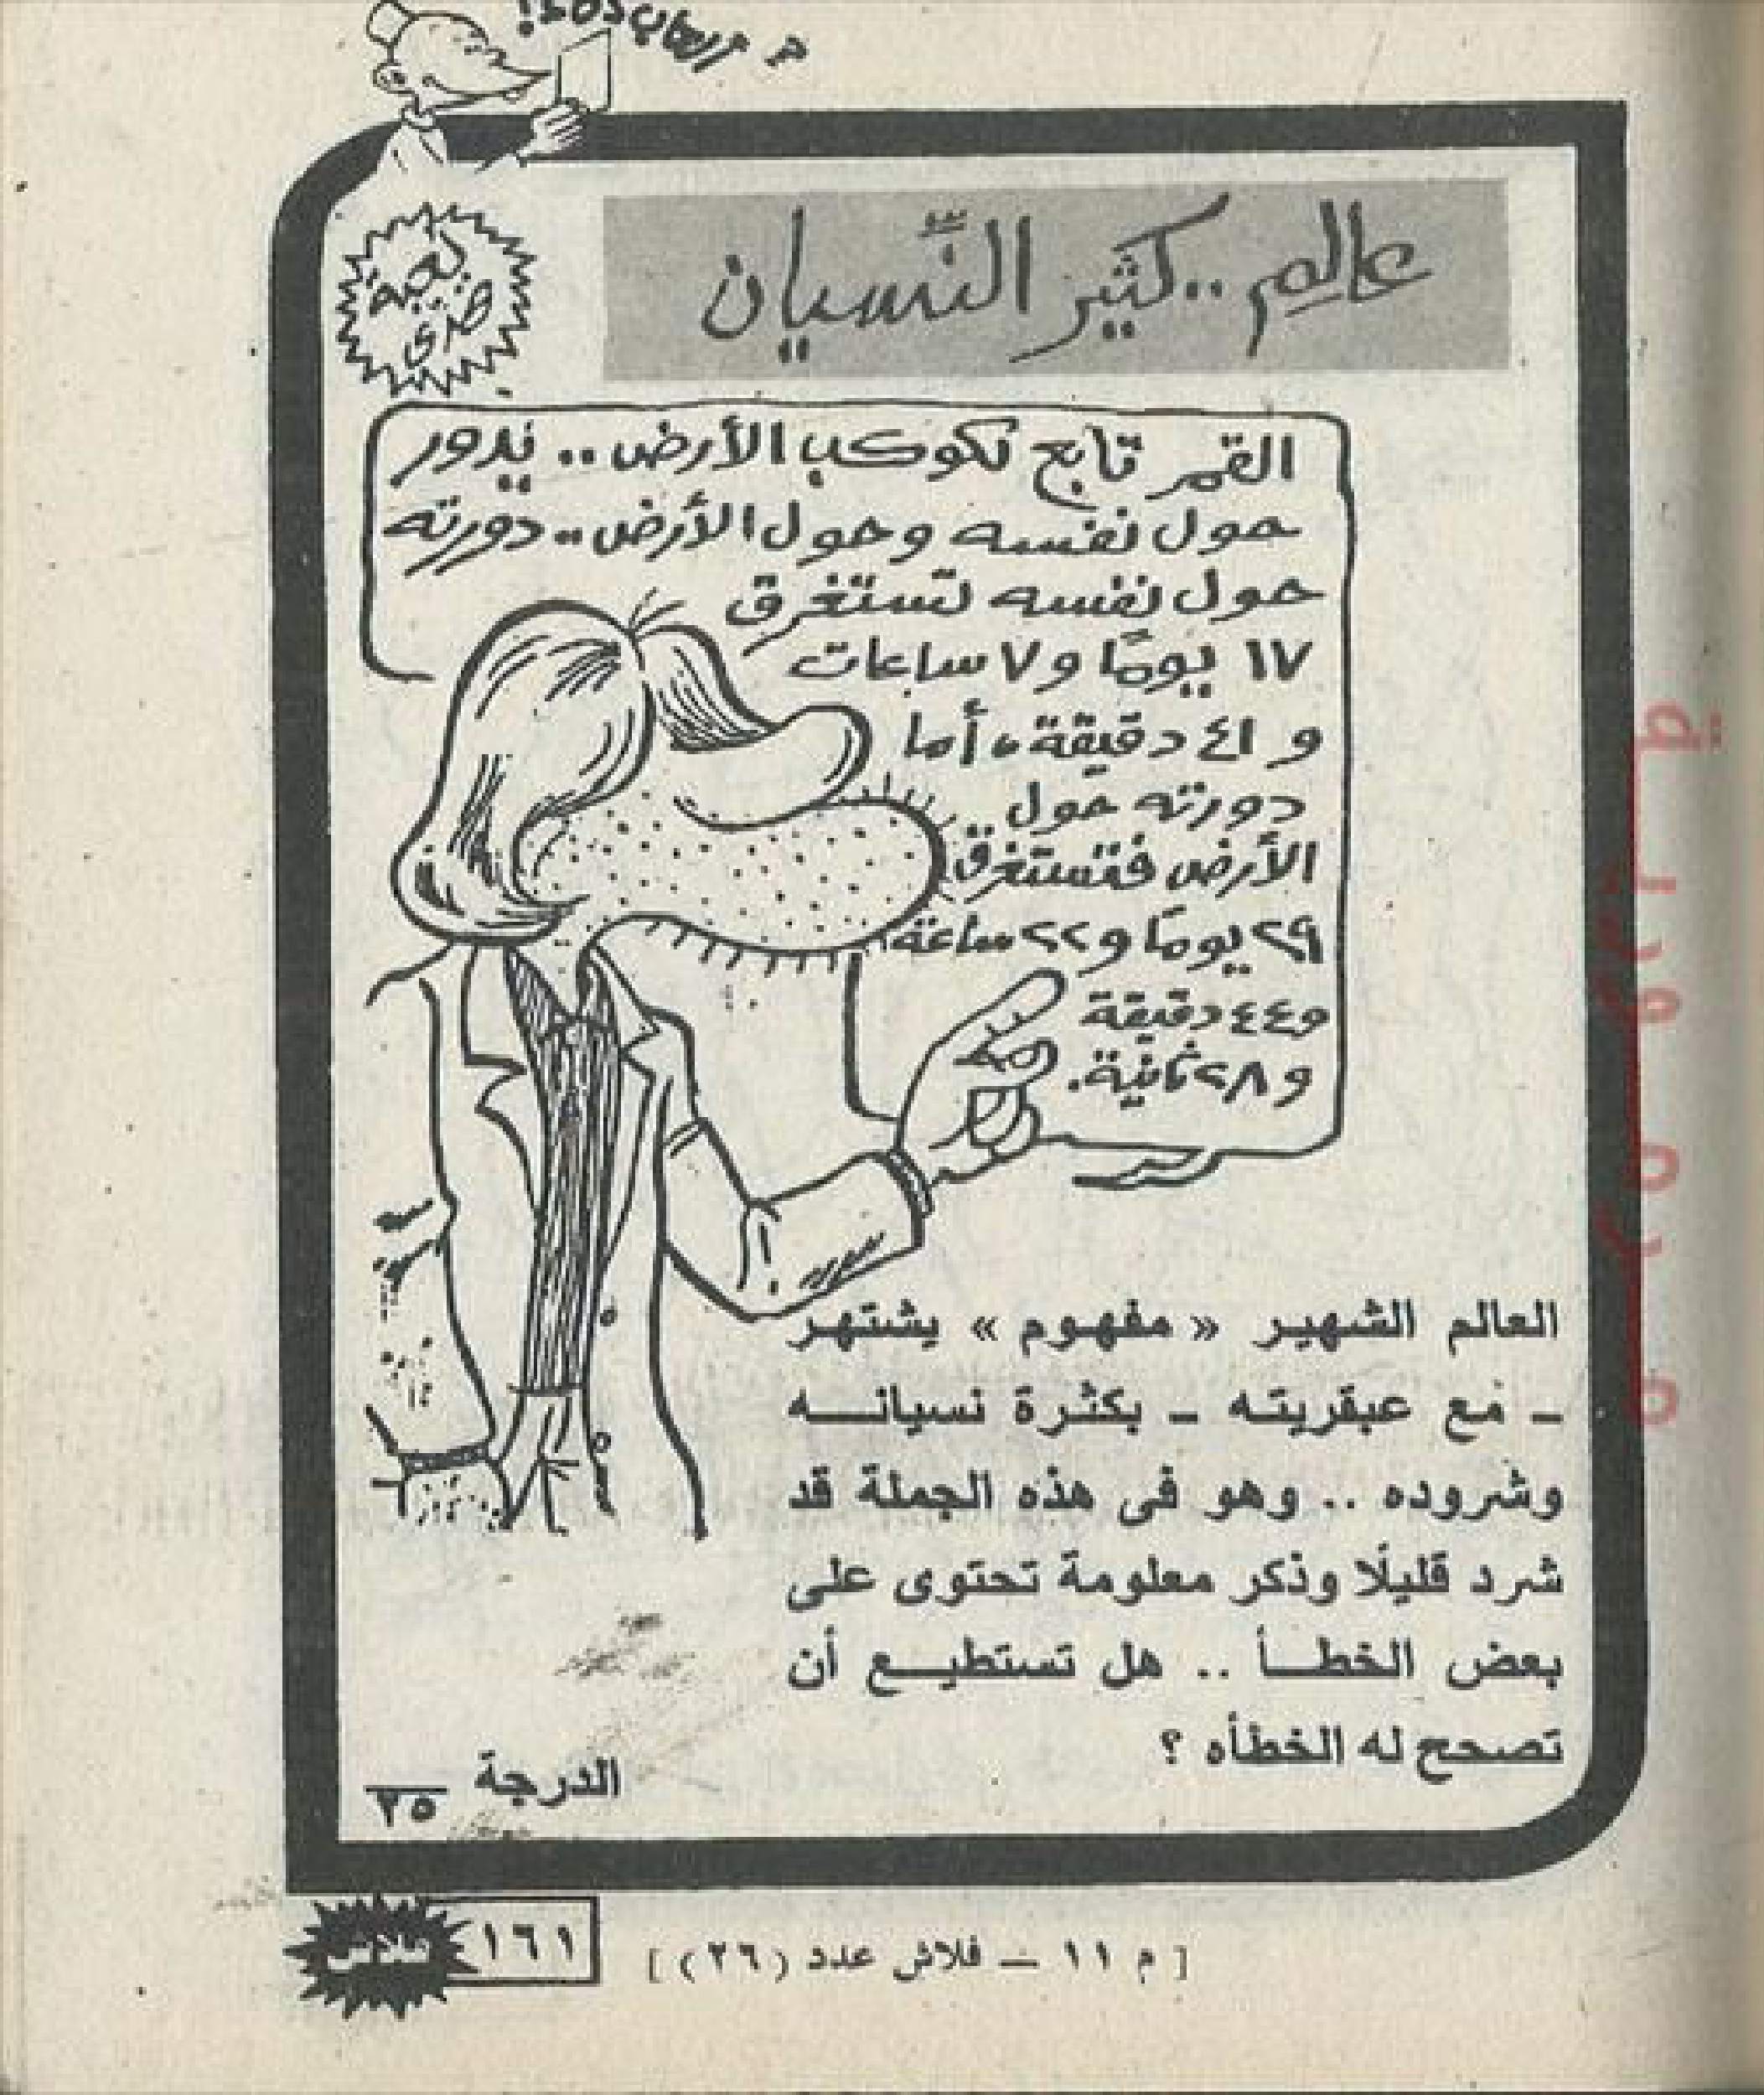 عالِم .. كثير النِّسيان
لعبة
فردى
القمر تابع لكوكب الأرض .. يدور
حول نفسه وحول الأرض .. دورته
حول نفسه تستغرق
١٧ يومًا و ٧ ساعات
و ٤١ دقيقة ، أما
دورته حول
الأرض فتستغرق
٢٩ يومًا و ٢٢ ساعة
و ٤٤ دقيقة
و ٢٨ ثانية .
العالم الشهير « مفهوم » يشتهر
ـ مع عبقريته ـ بكثرة نسيانــه
وشروده .. وهو فى هذه الجملة قد
شرد قليلًا وذكر معلومة تحتوى على
بعض الخطــأ .. هل تستطيــع أن
تصحح له الخطأه ؟
الدرجة ــ
٢٥
[ م ١١ ــ فلاش عدد (٢٦) ]
١٦١
فلاش